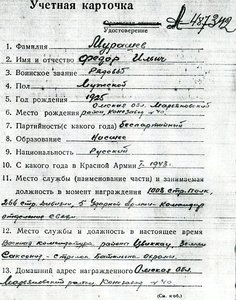 Учетная карточка
Удостоверение
А 487342
1. Фамилия Мурашев
2. Имя и отчество Федор Ильич
3. Воинское звание Рядовый
4. Пол Мужской
5. Год рождения 1925
Омская обл. Марьяновский
6. Место рождения район, Конезавод № 40
7. Партийность (с какого года) Беспартийный
8. Образование Низшее
9. Национальность Русский
10. С какого года в Красной Армии 1943.
11. Место службы (наименование части) и занимаемая
должность в момент награждения 1008 стр. Полк,
266 стр. дивизии, 5 Ударной армии командир
отделения связи
12. Место службы и должность в настоящее время
Военная комендатура района Цвиккау, Земли
Саксония, стрелок батальона охраны.
13. Домашний адрес награжденного Омская обл.
Марьяновский район, Конезавод № 40
(См. на об.)